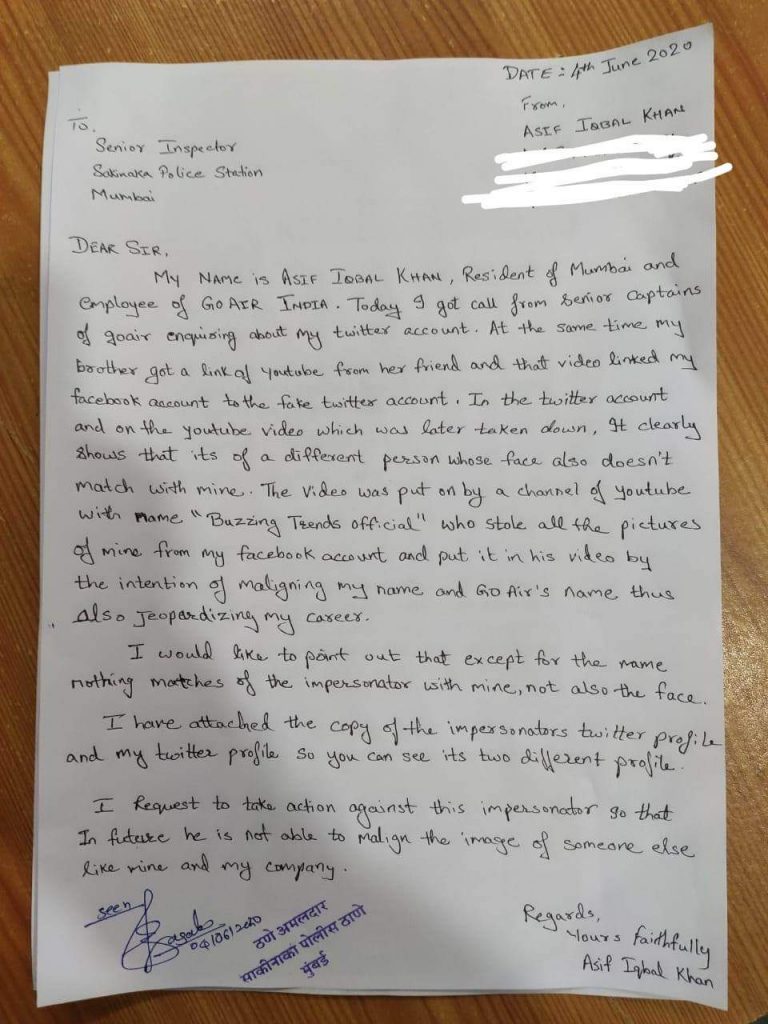 DATE: 4th June 2020
From,
ASIF IQBAL KHAN
To,
Senior Inspector
Sakinaka Police Station
Mumbai
DEAR SIR,
My Name is ASIF IQBAL KHAN, Resident of Mumbai and
employee of GO AIR INDIA. Today I got call from Senior Captains
of goair enquiring about my twitter account. At the same time my
brother got a link of youtube from her friend and that video linked my
facebook account to the fake twitter account. In the twitter account
and on the youtube video which was later taken down, It clearly
shows that its of a different person whose face also doesn't
match with mine. The video was put on by a channel of youtube
with name "Buzzing Trends official" who stole all the pictures
of mine from my facebook account and put it in his video by
the intention of maligning my name and GO Air's name thus
also jeopardizing my career.
I would like to point out that except for the name
nothing matches of the impersonator with mine, not also the face.
I have attached the copy of the impersonators twitter profile
and my twitter profile so you can see its two different profile.
I Request to take action against this impersonator so that
In future he is not able to malign the image of someone else
like mine and my company.
seen
04/06/2020
ठाणे अमलदार
साकीनाका पोलीस ठाणे
मुंबई
Regards,
Yours faithfully
Asif Iqbal Khan